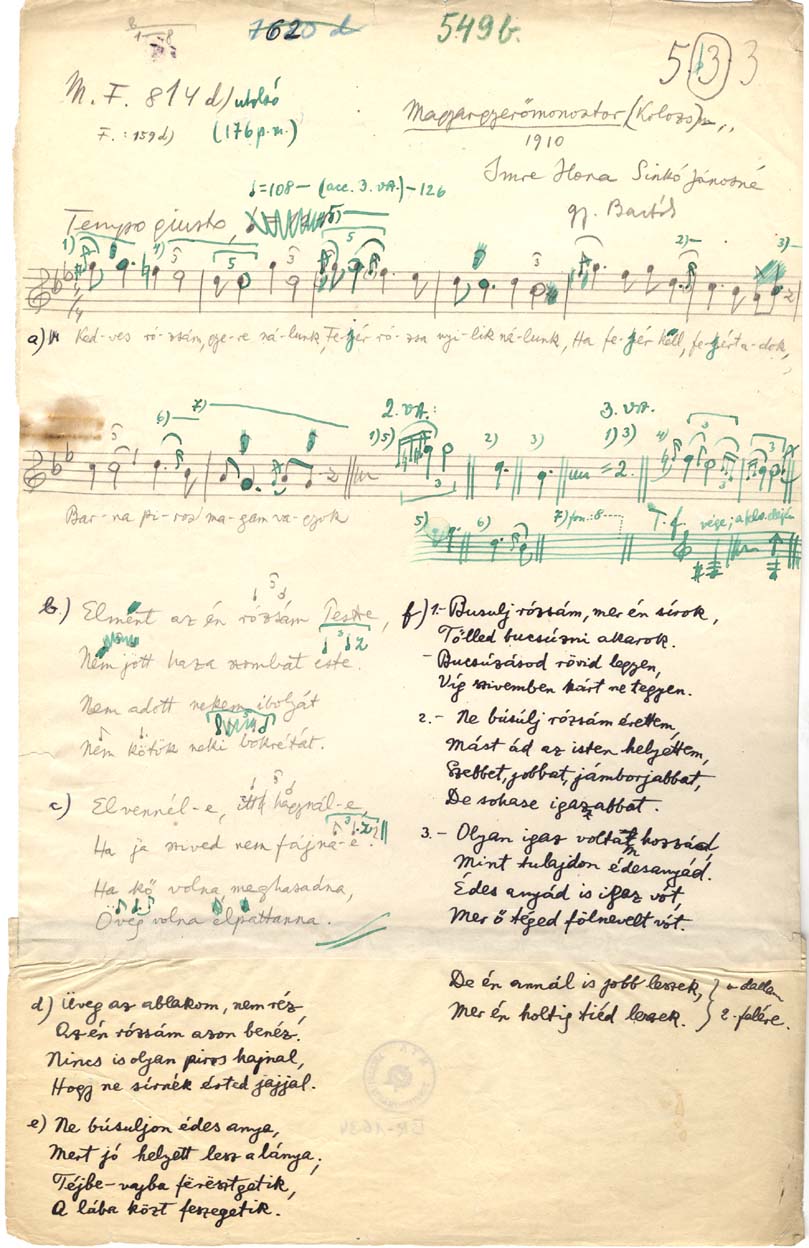 7620 d
549b.
5133
M. F. 814 d) utolsó
F.: 159 d)
(176 p.n.)
Magyargyerőmonostor (Kolozs) m.,
1910
Imre Ilona Sinkó Jánosné
gy. Bartók
♩=108— (acc. 3. vsz.)—126
Tempo giusto,
a) Ked-ves ró-zsám, gye-re ná-lunk, Fe-jér ró-zsa nyi-lik ná-lunk, Ha fe-jér kell, fe-jért a-dok,
2. vsz.:
3. vsz.
Bar-na pi-rosʼ ma-gam va-gyok
b.) Elment az én rózsám Pestre,
Nem jött haza szombat este.
Nem adott nekem ibolyát
Nem kötök neki bokrétát.
c) Elvennél-e, itthʼ hagynál-e,
Ha ja szived nem fájna-e.
Ha kő volna meghasadna,
Üveg volna elpattanna.
d) Üveg az ablakom, nem réz,
Az én rózsám azon benéz.
Nincs is olyan piros hajnal,
Hogy ne sírnék érted jajjal.
e) Ne búsuljon édes anya,
Mert jó helyett lesz a lánya,
Téjbe-vajba fërësztgetik,
A lába közt feszegetik.
f) 1.- Busulj rózsám, mer én sírok,
Tölled bucsúzni akarok.
Bucsúzásod rövid legyen,
Víg szivemben kárt ne tegyen.
2.- Ne búsúlj rózsám érettem,
Mást ád az isten helyëttem,
Szebbet, jobbat, jámborjabbat,
De sohase igazabbat.
3.- Olyan igaz voltam hozzád,
Mint tulajdon édesanyád.
Édes anyád is igaz vót,
Mer ő téged fölnevelt vót.
De én annál is jobb leszek, } a dallam
Mer én holtig tiéd leszek. } 2. felére.